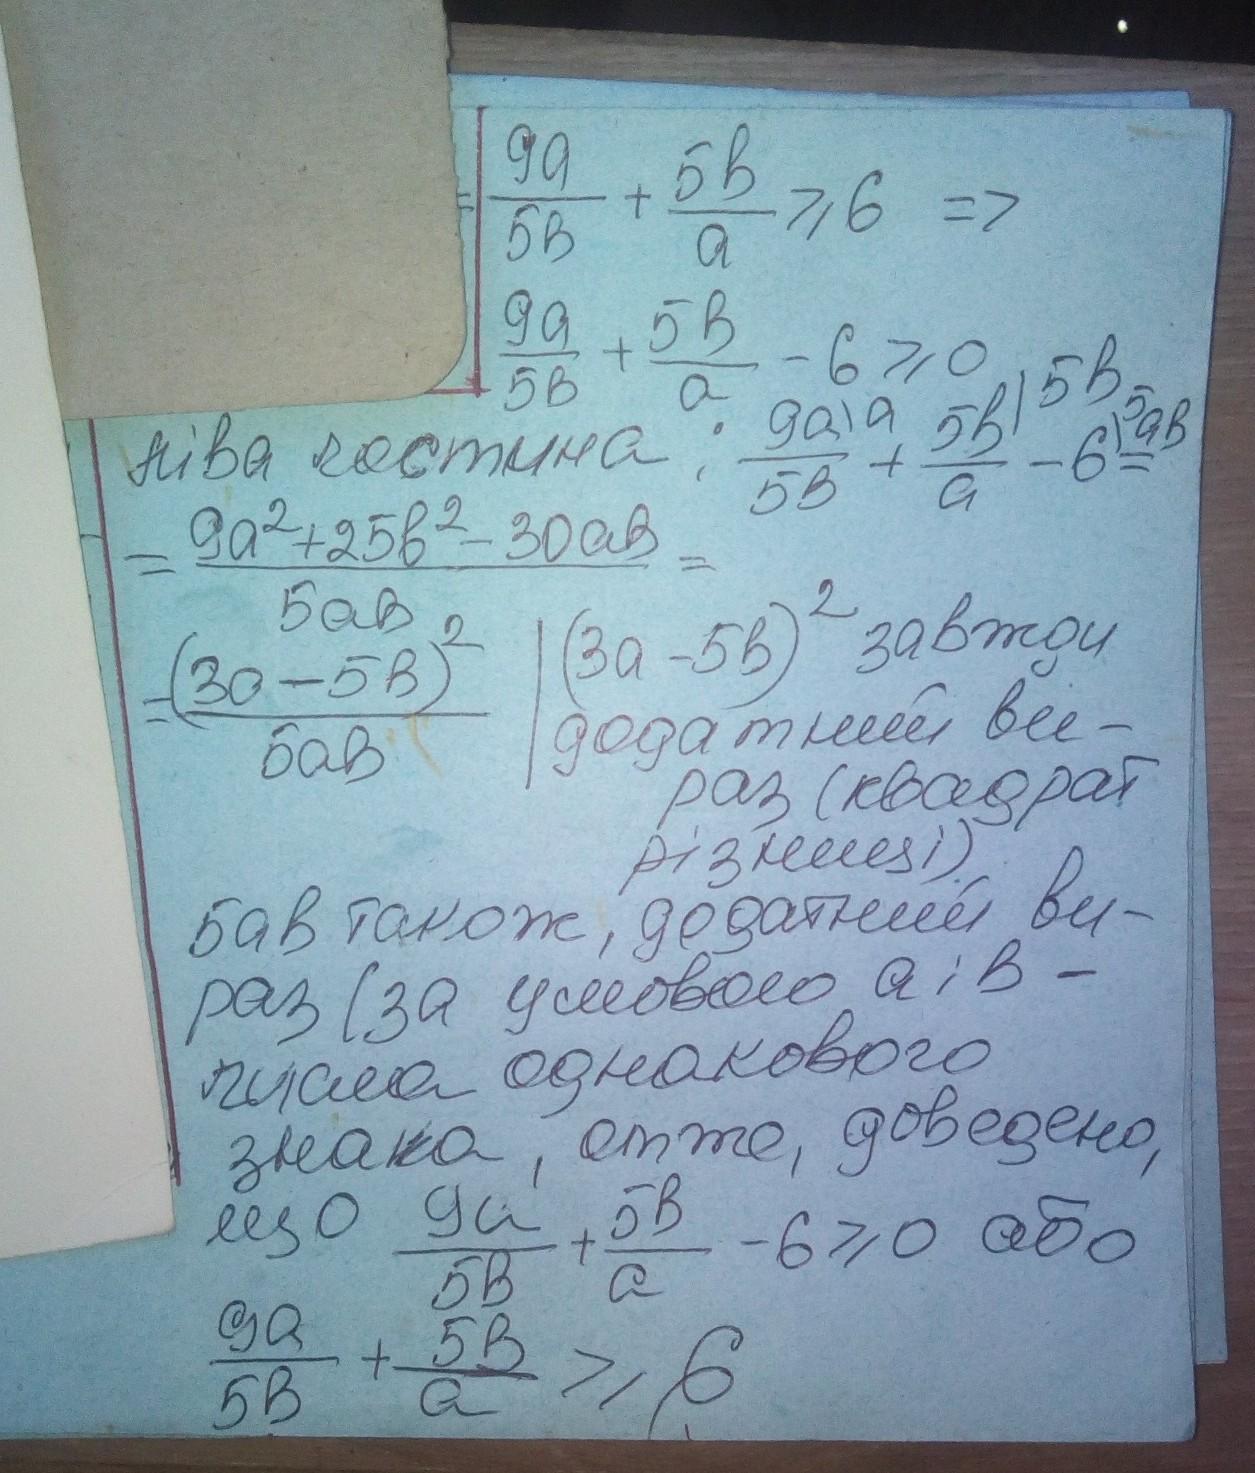 = 9a/5b + 5b/a ≥ 6 =>
9a/5b + 5b/a - 6 ≥ 0
ліва частина : 9a\a/5b + 5b|5b/a - 6\5ab =
= 9a² + 25b² - 30ab/5ab =
= (3a - 5b)²/5ab | (3a - 5b)² завжди
додатний ви-
раз (квадрат
різниці)
5ab також, додатний ви-
раз (за умовою a і b -
числа однакового
знака, отже, доведено,
що 9a/5b + 5b/a - 6 ≥ 0 або
9a/5b + 5b/a ≥ 6